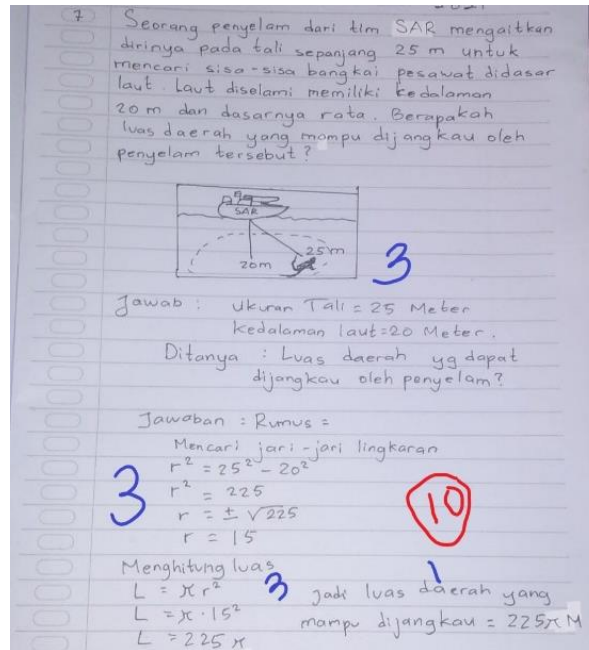 7 Seorang penyelam dari tim SAR mengaitkan
dirinya pada tali sepanjang 25 m untuk
mencari sisa-sisa bangkai pesawat didasar
laut. Laut diselami memiliki kedalaman
20 m dan dasarnya rata. Berapakah
luas daerah yang mampu dijangkau oleh
penyelam tersebut?
SAR
25 m
20m
3
Jawab : Ukuran Tali = 25 Meter
Kedalaman laut = 20 Meter.
Ditanya : Luas daerah yg dapat
dijangkau oleh penyelam?
Jawaban : Rumus =
Mencari jari-jari lingkaran
r² = 25² - 20²
3 r² = 225
r = ± √225
r = 15
10
Menghitung luas
L = π r² 3
L = π . 15²
L = 225 π
1
Jadi luas daerah yang
mampu dijangkau = 225π M